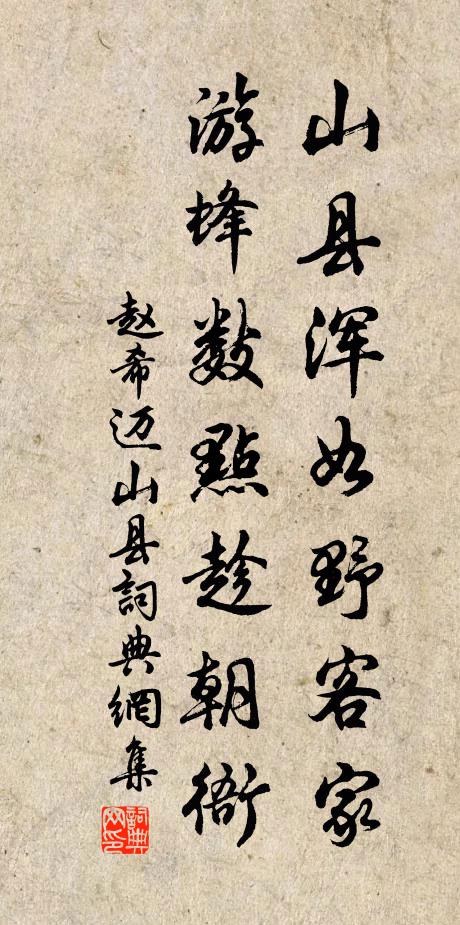 山县浑如野客家
游蜂数點趁朝衙
赵希迈山县詞典網集
詞典网印